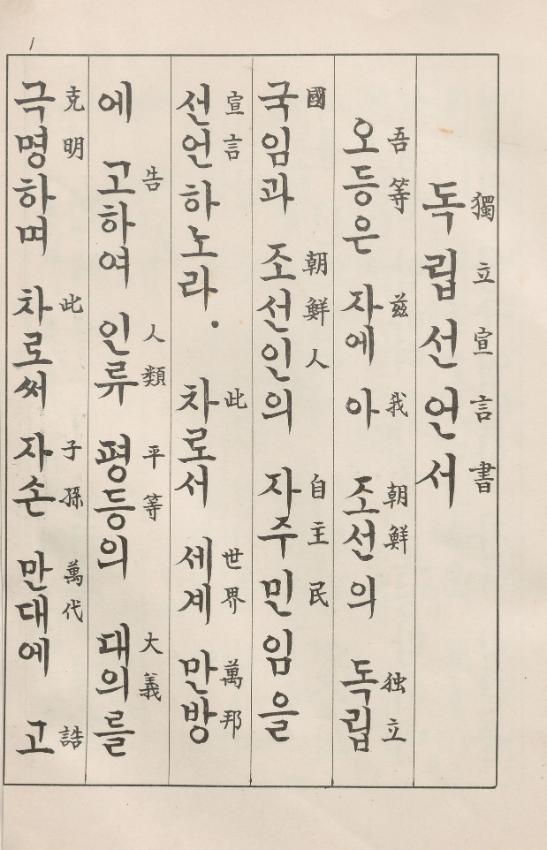 독립선언서
獨立宣言書
오등은 자에 아 조선의 독립
吾等 玆 我 朝鮮 独立
국임과 조선인의 자주민임을
國 朝鮮人 自主民
선언하노라. 차로서 세계 만방
宣言 此 世界 萬邦
에 고하여 인류 평등의 대의를
告 人類 平等 大義
극명하며 차로써 자손 만대에 고
克明 此 子孫 萬代 誥